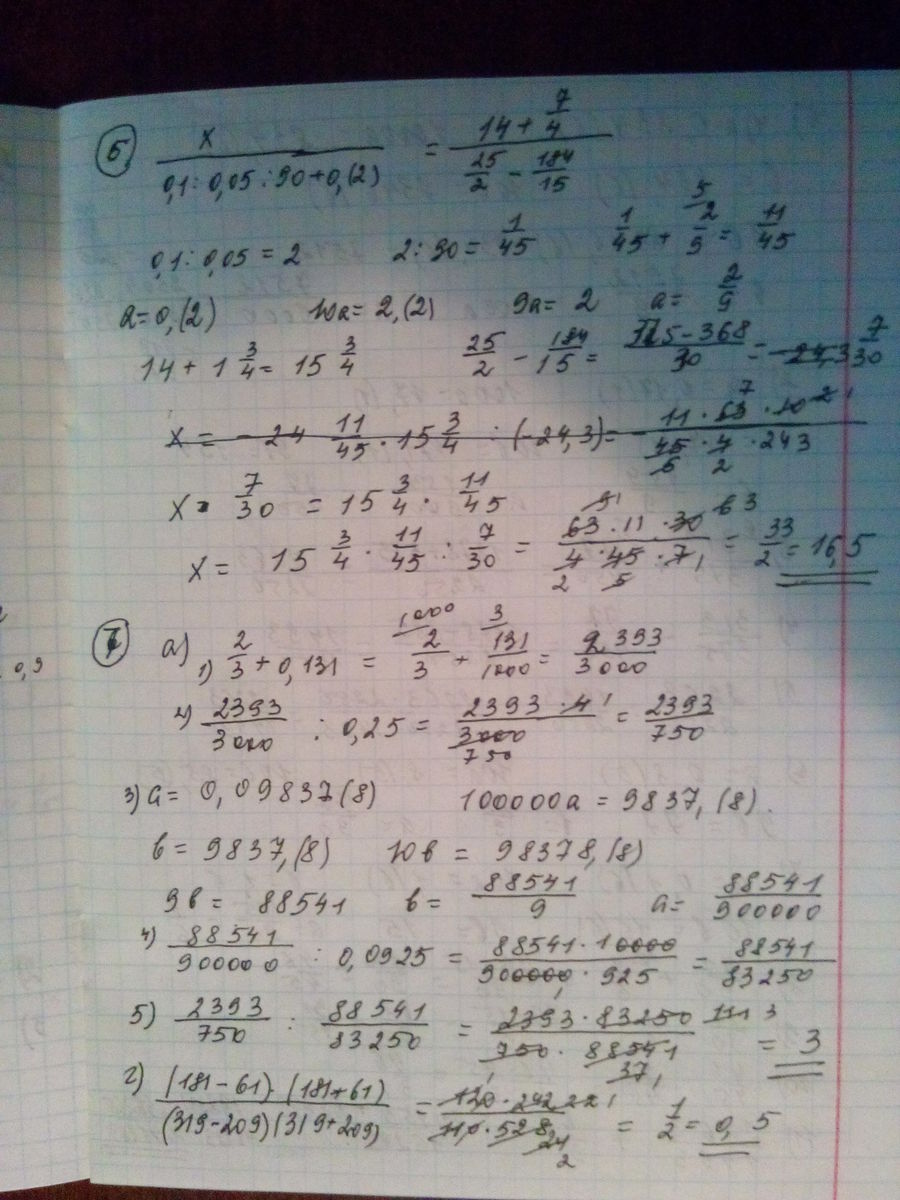 5) x / (0,1 : 0,05 : 90 + 0,(2)) = (14 + 7/4) / (25/2 - 184/15)
0,1 : 0,05 = 2 2 : 90 = 1/45 1/45 + 2/9 = 11/45
a = 0,(2) 10a = 2,(2) 9a = 2 a = 2/9
14 + 1 3/4 = 15 3/4 25/2 - 184/15 = (375-368)/30 = 7/30
x = - 24 11/45 · 15 3/4 : (-24,3) = - (11 · 63 · 10) / (45 · 4 · 243)
x · 7/30 = 15 3/4 · 11/45
x = 15 3/4 · 11/45 : 7/30 = (63 · 11 · 30) / (4 · 45 · 7) = 33/2 = 16,5
а) 1) 2/3 + 0,131 = 2/3 + 131/1000 = 2393/3000
2) 2393/3000 : 0,25 = (2393 · 4)/3000 = 2393/750
3) a = 0,09837(8) 100000a = 9837,(8).
b = 9837,(8) 10b = 98378,(8)
9b = 88541 b = 88541/9 a = 88541/900000
4) 88541/900000 : 0,0925 = (88541 · 10000)/(900000 · 925) = 88541/83250
5) 2393/750 : 88541/83250 = (2393 · 83250)/(750 · 88541) = 3
г) (181-61)·(181+61) / (319-209)(319+209) = (120 · 242)/(110 · 528) = 1/2 = 0,5
0,9